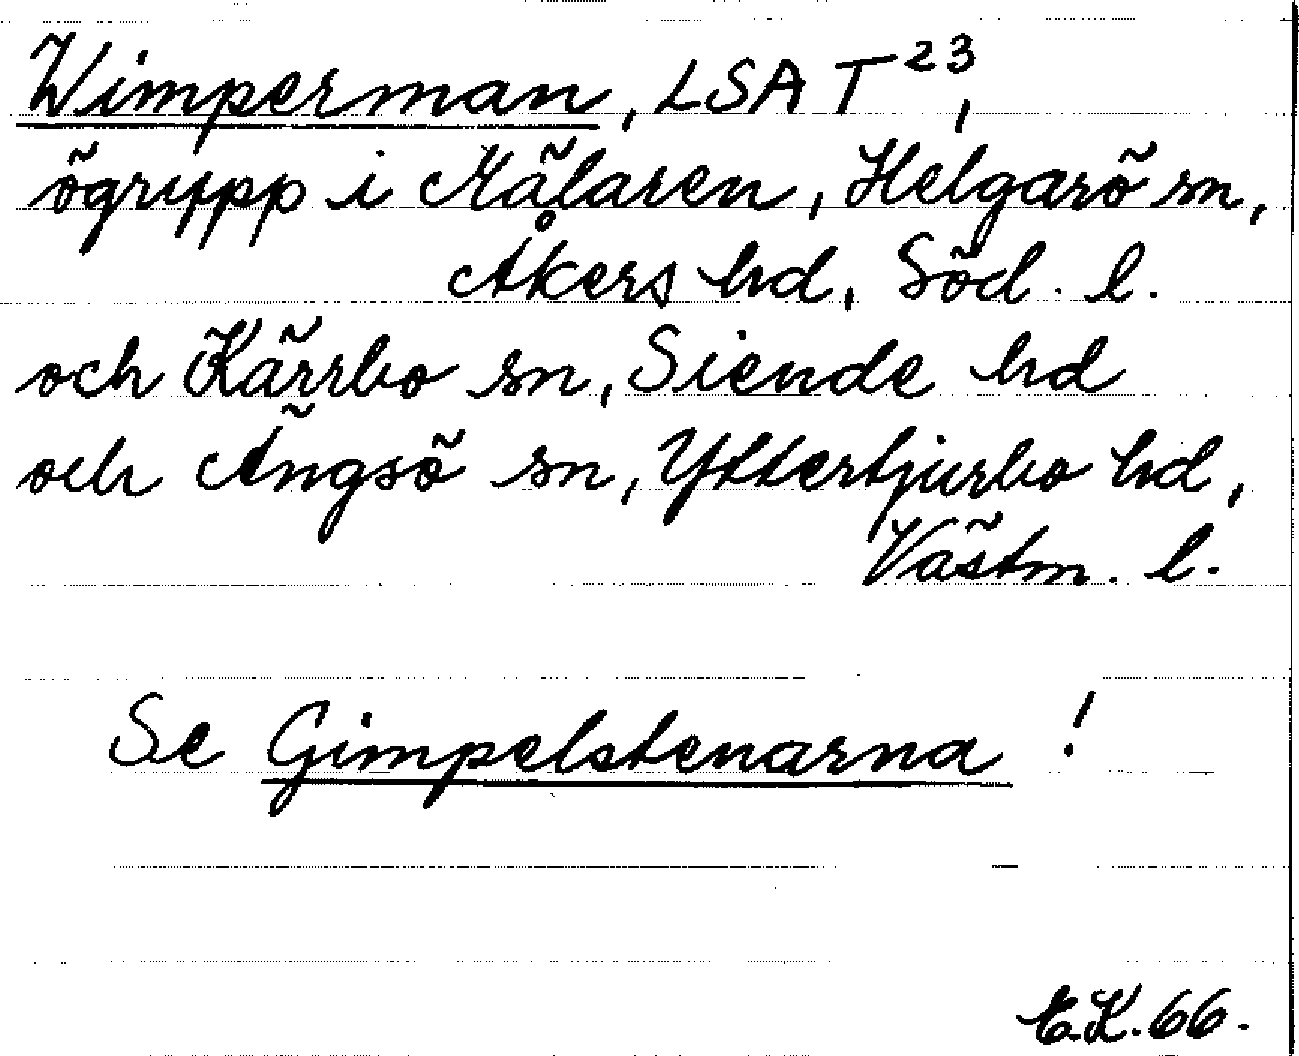 Wimperman, LSA T 23,
ögrupp i Mälaren, Helgarö sn,
Åkers hd, Söd. l.
och Kärrbo sn, Siende hd
och Ängsö sn, Yttertjurbo hd,
Västm. l.
Se Gimpelstenarna !
E.K. 66.